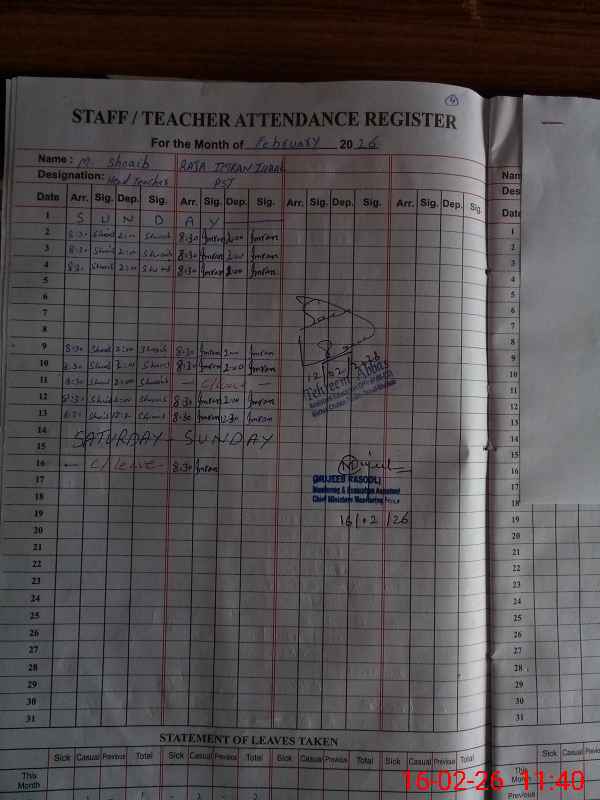 4
STAFF / TEACHER ATTENDANCE REGISTER
For the Month of February 2026
Name : M. Shoaib RAJA IMRAN IQBAL
Designation: Head Teacher PST
Date Arr. Sig. Dep. Sig. Arr. Sig. Dep. Sig. Arr. Sig. Dep. Sig. Arr. Sig. Dep. Sig.
1 S U N D A Y
2 8:30 Shoaib 2:00 Shoaib 8:30 Imran 2:00 Imran
3 8:30 Shoaib 2:00 Shoaib 8:30 Imran 2:00 Imran
4 8:30 Shoaib 2:00 Shoaib 8:30 Imran 2:00 Imran
5
6
7
8
9 8:30 Shoaib 2:00 Shoaib 8:30 Imran 2:00 Imran
10 8:30 Shoaib 2:00 Shoaib 8:30 Imran 2:00 Imran
11 8:30 Shoaib 2:00 Shoaib — C/leave —
12 8:30 Shoaib 2:00 Shoaib 8:30 Imran 2:00 Imran
13 8:30 Shoaib Shoaib 8:30 Imran 12:30 Imran
14 SATURDAY - SUNDAY
15
16 — C/leave — 8:30 Imran
17
18
19
20
21
22
23
24
25
26
27
28
29
30
31
12/02/2026
Tehreem Abbas
MUJEEB RASOOL
Monitoring & Evaluation Assistant
Chief Minister's Monitoring Force
16/02/26
STATEMENT OF LEAVES TAKEN
Sick Casual Previous Total Sick Casual Previous Total Sick Casual Previous Total Sick Casual Previous Total
This
Month
Nam
Des
Date
1
2
3
4
5
6
7
8
9
10
11
12
13
14
15
16
17
18
19
20
21
22
23
24
25
26
27
28
29
30
31
Sick Casual Previous
This
Month
Previous
16-02-26 11:40